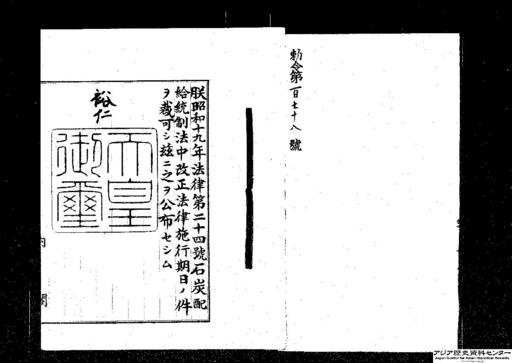 勅令第百七十八號
朕昭和十九年法律第二十四號石炭配
給統制法中改正法律施行期日ノ件
ヲ裁可シ茲ニ之ヲ公布セシム
裕仁
天皇
御璽
内閣
アジア歴史資料センター
Japan Center for Asian Historical Records